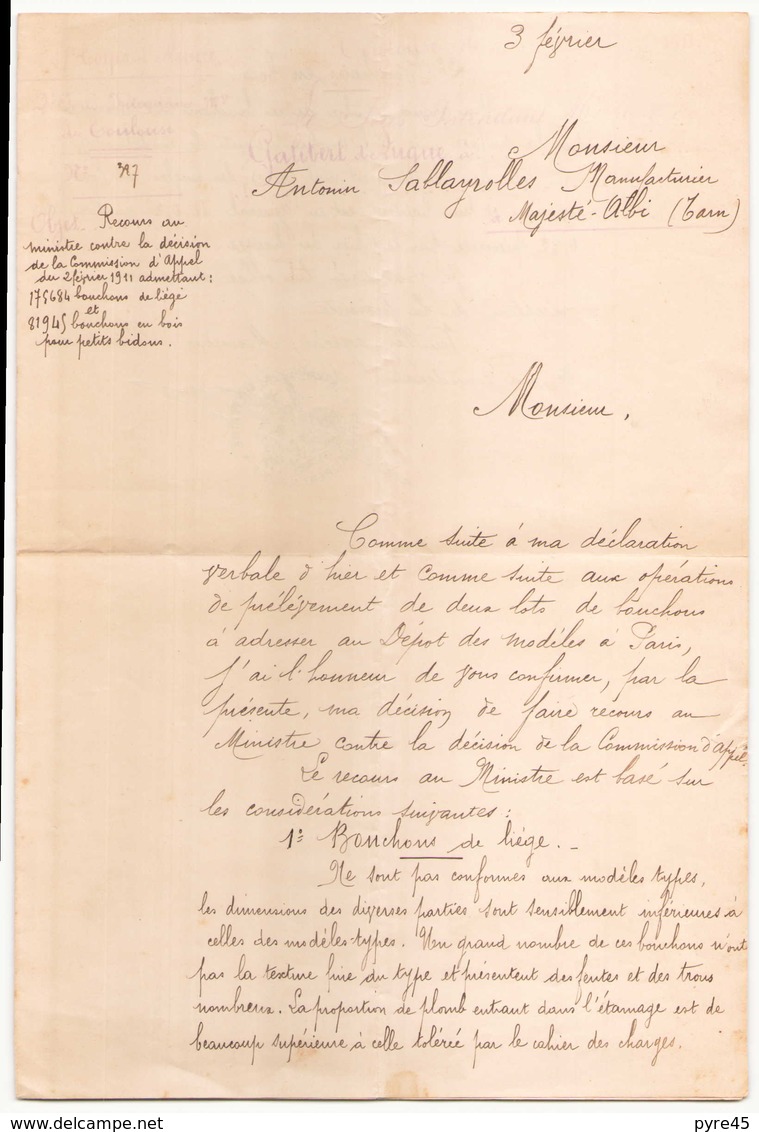 3 février
Monsieur
Antonin Sablayrolles Manufacturier
Majesté-Albi (Tarn)
de Toulouse
N° 327
Objet Recours au
ministre contre la décision
de la Commission d'Appel
du 2 février 1911 admettant :
175684 bouchons de liège
et
81945 bouchons en bois
pour petits bidons.
Monsieur,
Comme suite à ma déclaration
verbale d'hier et comme suite aux opérations
de prélévement de deux lots de bouchons
à adresser au Dépot des modèles à Paris,
j'ai l'honneur de vous confirmer, par la
présente, ma décision de faire recours au
Ministre contre la décision de la Commission d'Appel.
Le recours au Ministre est basé sur
les considérations suivantes :
1° Bouchons de liège. -
Ne sont pas conformes aux modèles types,
les dimensions des diverses parties sont sensiblement inférieures à
celles des modèles-types. Un grand nombre de ces bouchons n'ont
pas la texture fine du type et présentent des fentes et des trous
nombreux. La proportion de plomb entrant dans l'étamage est de
beaucoup supérieure à celle tolérée par le cahier des charges.
www.delcampe.net
pyre45